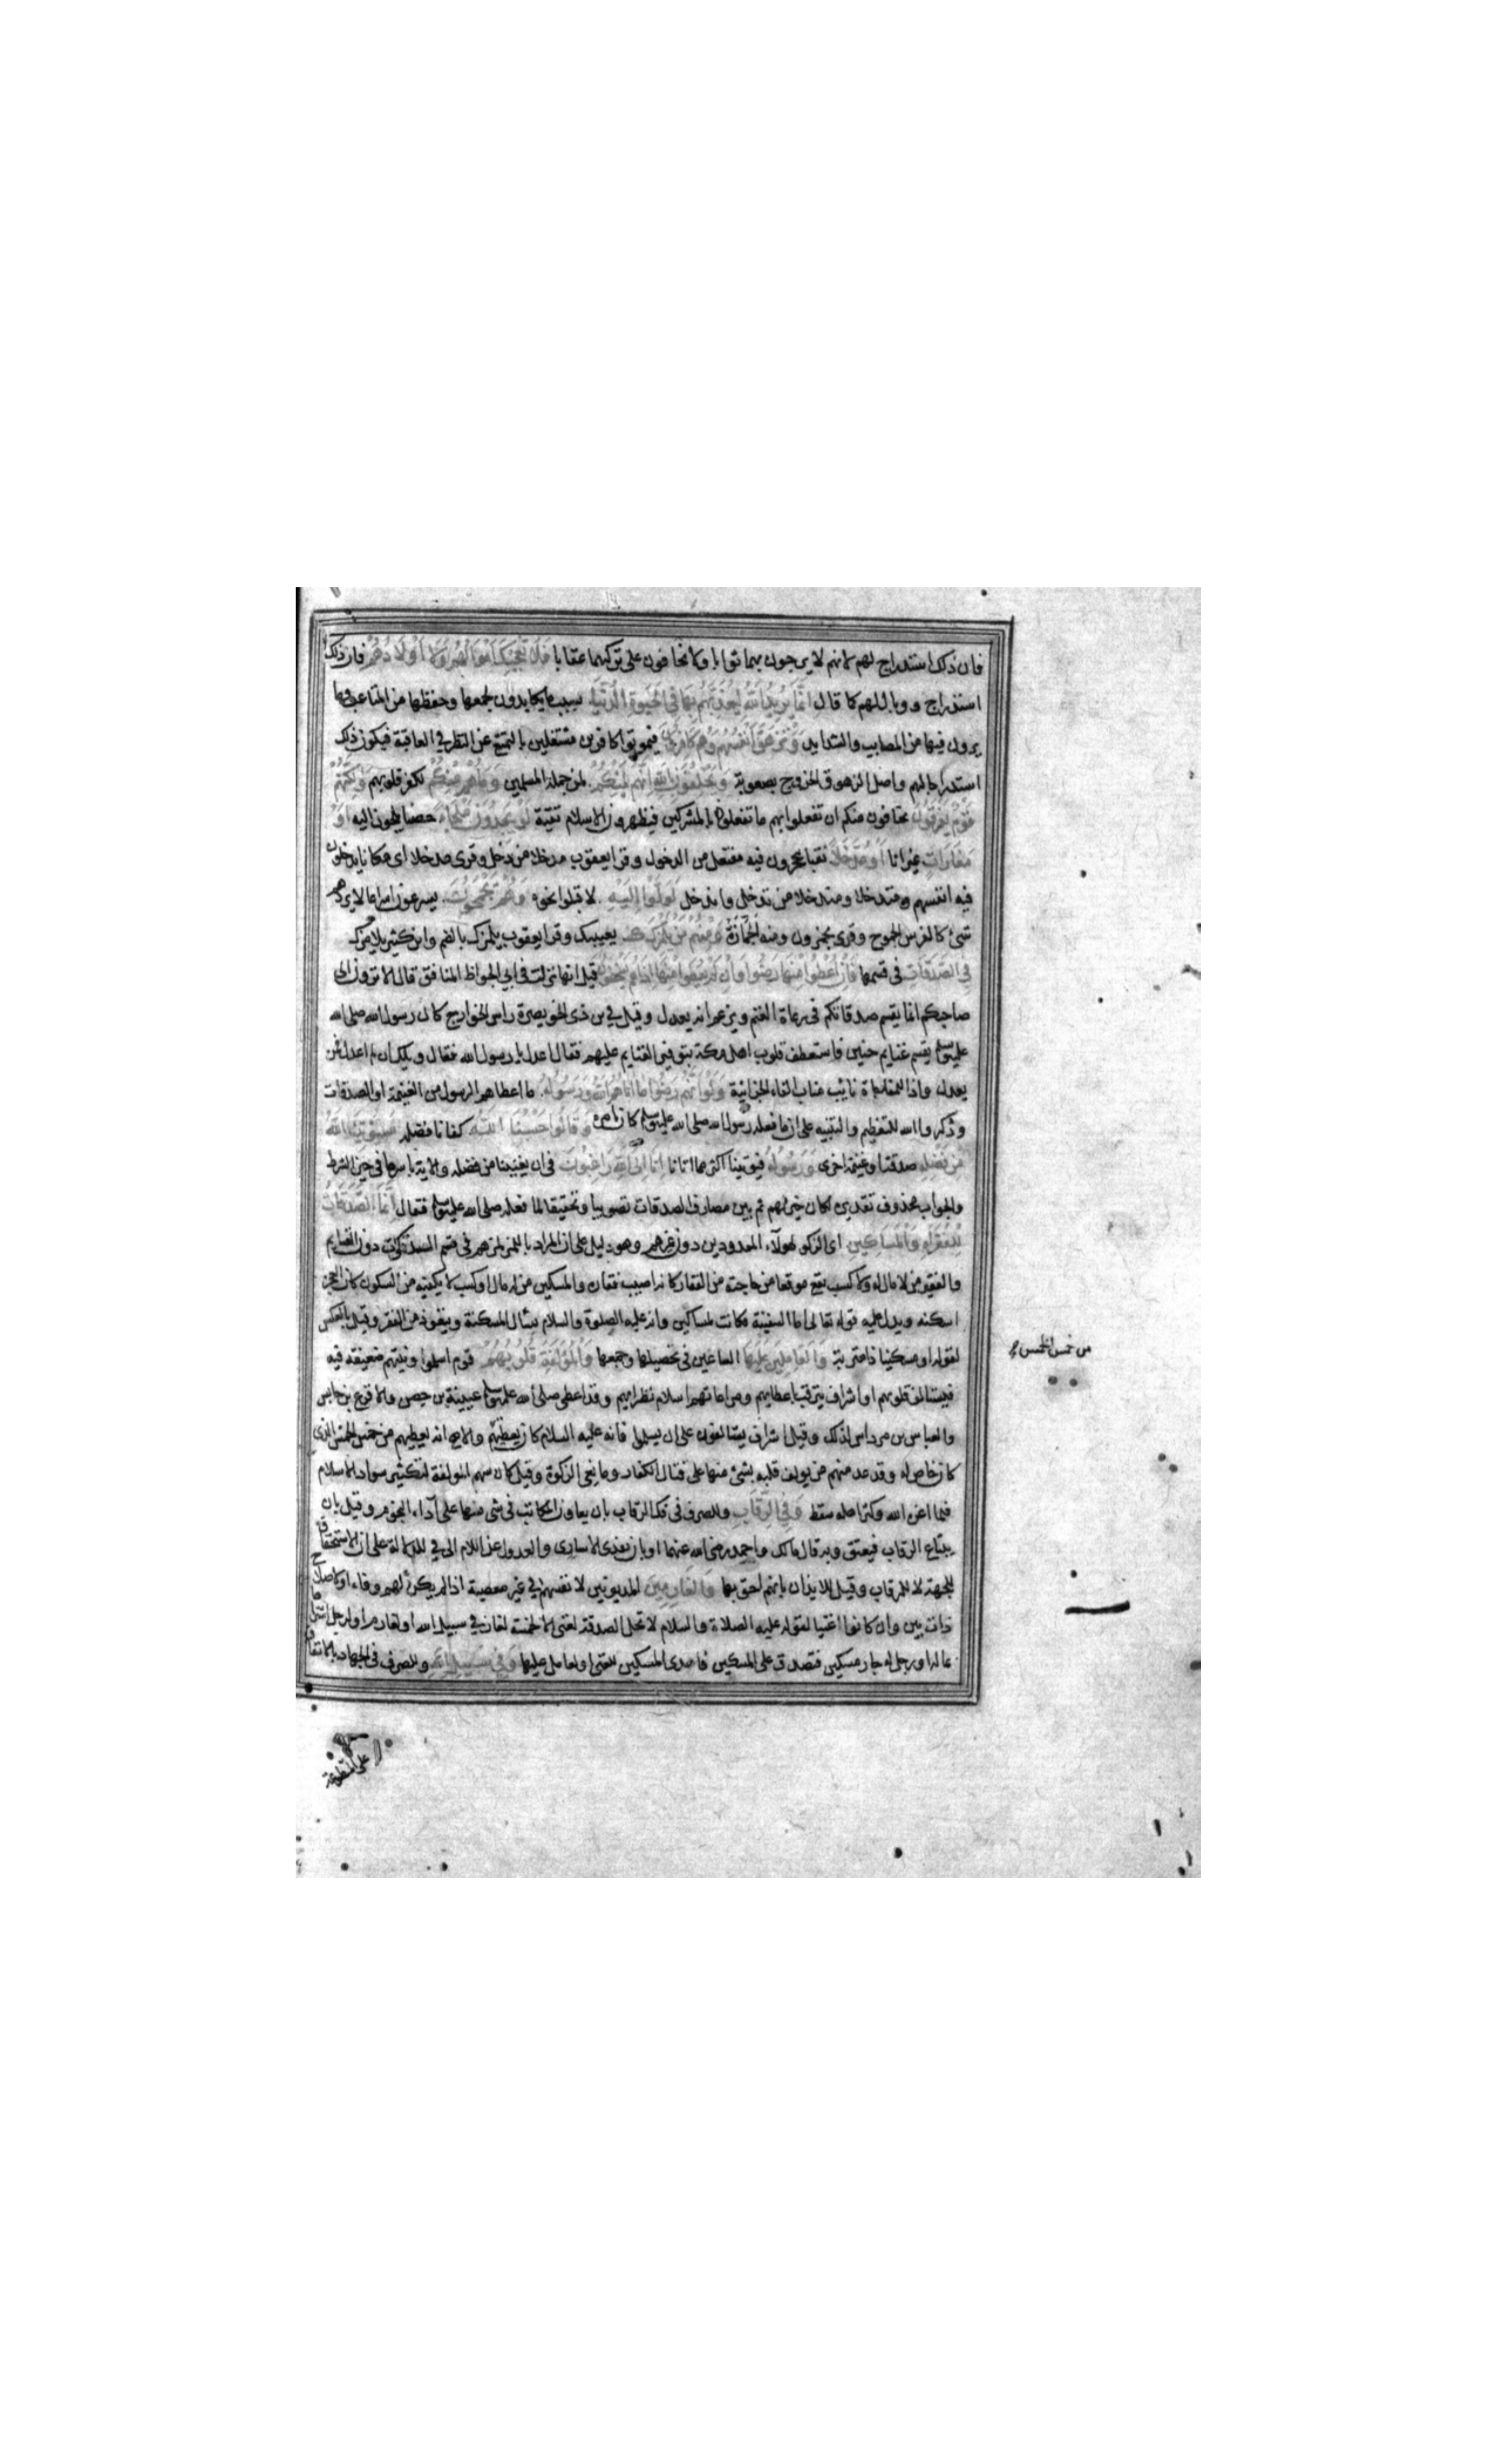 فان ذلك استدراج لهم لانهم لا يرجون بهما ثوابا ولا يخافون على تركهما عقابا فلا تعجبك اموالهم ولا اولادهم فان ذلك
استدراج ووبال لهم كما قال انما يريد الله ليعذبهم بها في الحيوة الدنيا بسبب ما يكابدون لجمعها وحفظها من المتاعب وما
يرون فيها من المصايب والشدايد وتزهق انفسهم وهم كافرون فيموتوا كافرين مشتغلين بالتمتع عن النظر في العاقبة فيكون ذلك
استدراجا لهم واصل الزهوق الخروج بصعوبة ويحلفون بالله انهم لمنكم لمن جملة المسلمين وما هم منكم لكفر قلوبهم ولكنهم
قوم يفرقون يخافون منكم ان تفعلوا بهم ما تفعلون بالمشركين فيظهرون الاسلام تقية لو يجدون ملجاء حصنا يلجؤن اليه او
مغارات غيرانا او مدخلا نفقا ينجحرون فيه مفتعل من الدخول وقرا يعقوب مدخلا من دخل وقرى مدخلا اى مكانا يدخلون
فيه انفسهم ومتدخلا ومندخلا من تدخل واندخل لولوا اليه لاقبلوا نحوه وهم يجمحون يسرعون اسراعا لا يردهم
شئ كالفرس الجموح وقرى يجمزون ومنه الجمازة ومنهم من يلمزك يعيبك وقرا يعقوب يلمزك بالضم وابن كثير يلامزك
في الصدقات في قسمها فان اعطوا منها رضوا وان لم يعطوا منها اذا هم يسخطون قيل انها نزلت في ابي الجواظ المنافق قال الا ترون الى
صاحبكم انما يقسم صدقاتكم في رعاة الغنم ويزعم انه يعدل وقيل في بن ذي الخويصرة راس الخوارج كان رسول الله صلى الله
عليه وسلم يقسم غنايم حنين فاستعطف قلوب اهل مكة بتوفير الغنايم عليهم فقال اعدل يا رسول الله فقال ويلك ان لم اعدل فمن
يعدل واذا للمفاجاة نايب مناب الفاء الجزائية ولو انهم رضوا ما اتاهم الله ورسوله ما اعطاهم الرسول من الغنيمة او الصدقات
وذكر الله للتعظيم والتنبيه على ان ما فعله رسول الله صلى الله عليه وسلم كان بامره وقالوا حسبنا الله كفانا فضله سيؤتينا الله
من فضله صدقة او غنيمة اخرى ورسوله فيؤتينا اكثر مما اتانا انا الى الله راغبون في ان يغنينا من فضله والاية باسرها في حيز الشرط
والجواب محذوف تقديره لكان خيرا لهم ثم بين مصارف الصدقات تصويبا وتحقيقا لما فعله صلى الله عليه وسلم فقال انما الصدقات
للفقراء والمساكين اى الزكوة لهولاء المعدودين دون غيرهم وهو دليل على ان المراد باللمز لمزهم في قسم الزكوات دون الغنايم
والفقير من لا مال له ولا كسب يقع موقعا من حاجته من الفقار كانه اصيب فقاره والمسكين من له مال او كسب لا يكفيه من السكون كان العجز
اسكنه ويدل عليه قوله تعالى اما السفينة فكانت لمساكين وانه عليه الصلوة والسلام يسال المسكنة ويتعوذ من الفقر وقيل بالعكس
لقوله او مسكينا ذا متربة والعاملين عليها الساعين في تحصيلها وجمعها والمؤلفة قلوبهم قوم اسلموا ونيتهم ضعيفة فيه
فيستالف قلوبهم او اشراف يترقب باعطايهم ومراعاتهم اسلام نظرايهم وقد اعطى صلى الله عليه وسلم عيينة بن حصن والاقرع بن حابس
والعباس بن مرداس لذلك وقيل اشراف يستالفون على ان يسلموا فانه عليه السلام كان يعطيهم والاصح انه يعطيهم من خمس الخمس الذي
كان خاص له وقد عد منهم من يولف قلبه بشئ منها على قتال الكفار ومانعي الزكوة وقيل كان سهم المولفة لتكثير سواد الاسلام
فلما اعزه الله وكثر اهله سقط وفي الرقاب وللصرف في فك الرقاب بان يعاون المكاتب في شى منها على اداء النجوم وقيل بان
يبتاع الرقاب فيعتق وبه قال مالك واحمد رضى الله عنهما او بان يفدى الاسارى والعدول عن اللام الى في للدلالة على ان الاستحقاق
للجهة لا للرقاب وقيل للايذان بانهم احق بها والغارمين المديونين لانفسهم في غير معصية اذا لم يكن لهم وفاء او لاصلاح
ذات بين وان كانوا اغنيا لقوله عليه الصلاة والسلام لا تحل الصدقة لغنى الا لخمسة لغاز في سبيل الله او لغارم او لرجل اشتراها
بماله او رجل له جار مسكين فتصدق على المسكين فاهدى المسكين للغنى او لعامل عليها وفي سبيل الله وللصرف في الجهاد بالانفاق
من خمس الخمس
على المتطوعة